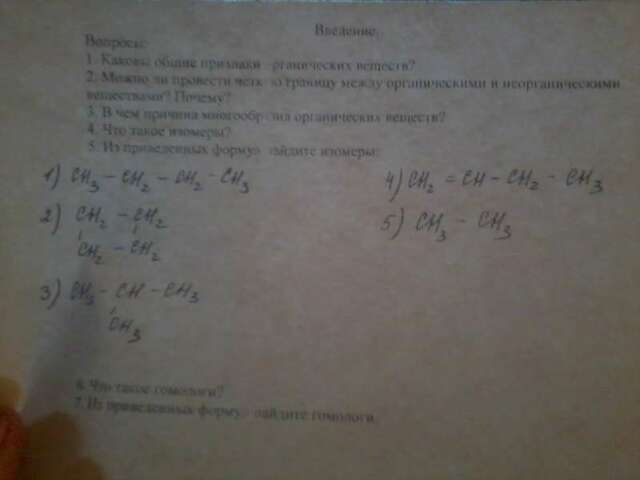 Введение.
Вопросы:
1. Каковы общие признаки рганических веществ?
2. Можно ли провести четк ю границу между органическими и неорганическими
веществами? Почему?
3. В чем причина многообр зия органических веществ?
4. Что такое изомеры?
5. Из приведенных формул айдите изомеры:
1) CH3 – CH2 – CH2 – CH3
4) CH2 = CH – CH2 – CH3
2) CH2 – CH2
CH2 – CH2
5) CH3 – CH3
3) CH3 – CH – CH3
CH3
6. Что такое гомологи?
7. Из приведенных формул айдите гомологи